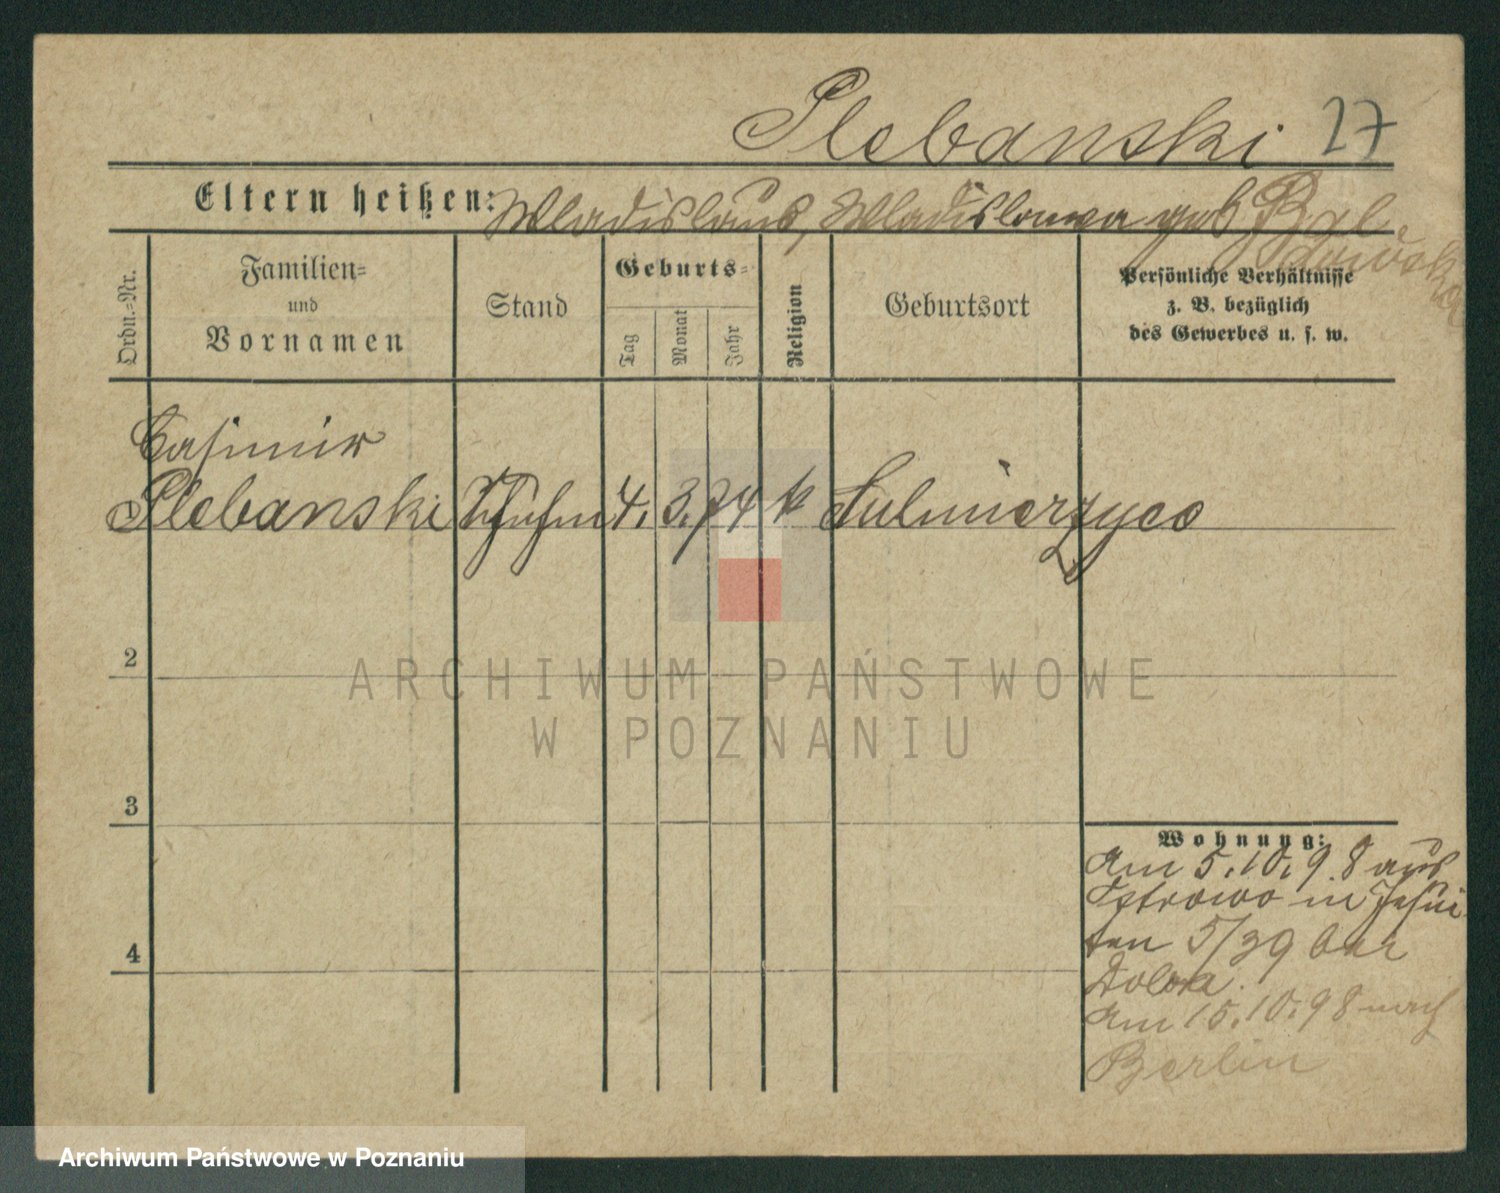 Plebanski 27
Eltern heißen: Wladislaus, Wladislawa geb Bal
dowska
Ordn.-Nr.
Familien-
und
Vornamen
Stand
Geburts-
Tag
Monat
Jahr
Religion
Geburtsort
Persönliche Verhältnisse
z. B. bezüglich
des Gewerbes u. s. w.
Casimir
1 Plebanski Schuhm 4. 3. 74 k Sulmierzyce
2
3
4
Wohnung:
Am 5.10.98 aus
Ostrowo in Jesui
ten 5/39 bei
Am 15.10.98 nach
Berlin
ARCHIWUM PAŃSTWOWE
W POZNANIU
Archiwum Państwowe w Poznaniu